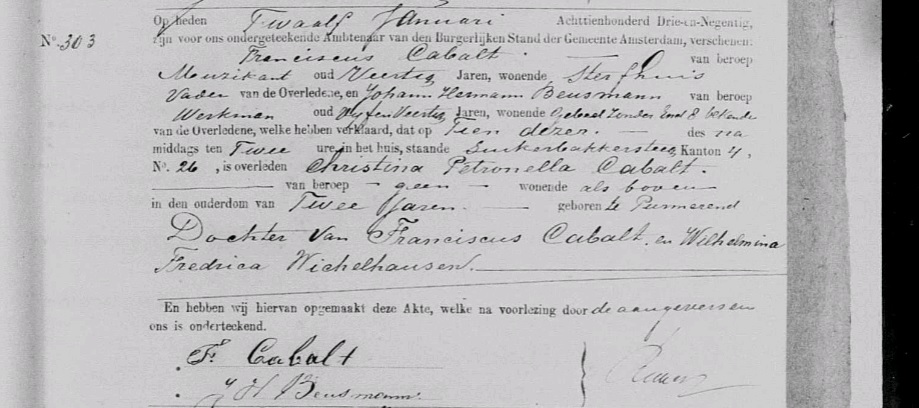 Op heden Twaalf Januari Achttienhonderd Drie-en-Negentig,
No. 303 zijn voor ons ondergeteekende Ambtenaar van den Burgerlijken Stand der Gemeente Amsterdam, verschenen:
Franciscus Cabalt van beroep
Muzikant oud Veertig Jaren, wonende Sterfhuis
Vader van de Overledene, en Johann Hermann Beusmann van beroep
Werkman oud Vyfenveertig Jaren, wonende Gebraed Zonder Eind 8 bekende
van de Overledene, welke hebben verklaard, dat op Tien dezer des na
middags ten Twee ure, in het huis, staande Suikerbakkersteeg, Kanton 4,
No. 26, is overleden Christina Petronella Cabalt.
van beroep geen wonende als boven
in den ouderdom van Twee Jaren. geboren te Purmerend
Dochter van Franciscus Cabalt. en Wilhelmina
Fredrica Wichelhausen.
En hebben wij hiervan opgemaakt deze Akte, welke na voorlezing door de aangevers en
ons is onderteekend.
F. Cabalt
J H Beusmann.